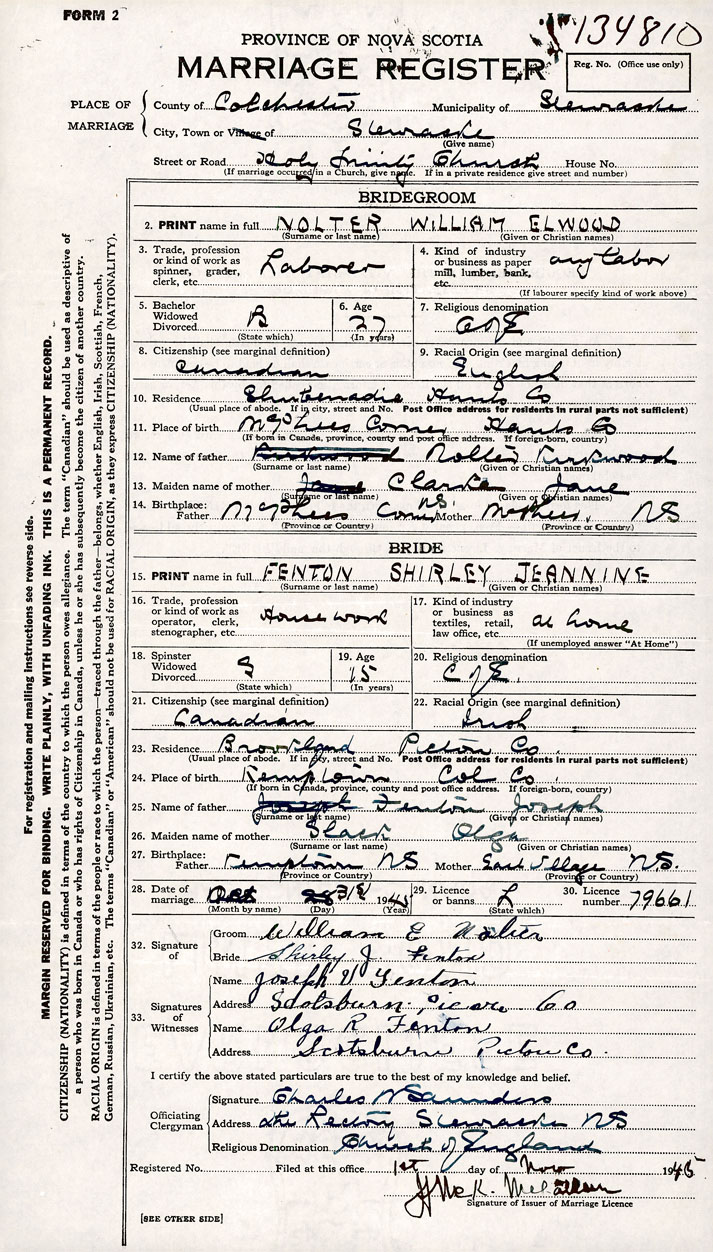 FORM 2
134810
PROVINCE OF NOVA SCOTIA
MARRIAGE REGISTER
Reg. No. (Office use only)
PLACE OF MARRIAGE
County of Colchester Municipality of Stewiacke
City, Town or Village of Stewiacke
(Give name)
Street or Road Holy Trinity Church House No.
(If marriage occurred in a Church, give name. If in a private residence give street and number)
BRIDEGROOM
2. PRINT name in full NOLTER WILLIAM ELWOOD
(Surname or last name) (Given or Christian names)
3. Trade, profession or kind of work as spinner, grader, clerk, etc. Laborer
4. Kind of industry or business as paper mill, lumber, bank, etc. any labor
(If labourer specify kind of work above)
5. Bachelor Widowed Divorced B (State which)
6. Age 27 (In years)
7. Religious denomination C of E
8. Citizenship (see marginal definition) Canadian
9. Racial Origin (see marginal definition) English
10. Residence Shubenadie Hants Co
(Usual place of abode. If in city, street and No. Post Office address for residents in rural parts not sufficient)
11. Place of birth McPhees Corner Hants Co
(If born in Canada, province, county and post office address. If foreign-born, country)
12. Name of father Nolter Kirkwood
(Surname or last name) (Given or Christian names)
13. Maiden name of mother Jane Clarke Jane
(Surname or last name) (Given or Christian names)
14. Birthplace: Father McPhees Corner NS Mother McPhees, NS
(Province or Country) (Province or Country)
BRIDE
15. PRINT name in full FENTON SHIRLEY JEANNINE
(Surname or last name) (Given or Christian names)
16. Trade, profession or kind of work as operator, clerk, stenographer, etc. House work
17. Kind of industry or business as textiles, retail, law office, etc. at home
(If unemployed answer "At Home")
18. Spinster Widowed Divorced S (State which)
19. Age 15 (In years)
20. Religious denomination C of E.
21. Citizenship (see marginal definition) Canadian
22. Racial Origin (see marginal definition) Irish
23. Residence Brookland Pictou Co
(Usual place of abode. If in city, street and No. Post Office address for residents in rural parts not sufficient)
24. Place of birth Kemptown Col Co
(If born in Canada, province, county and post office address. If foreign-born, country)
25. Name of father Joseph Fenton Joseph
(Surname or last name) (Given or Christian names)
26. Maiden name of mother Slack Olga
(Surname or last name) (Given or Christian names)
27. Birthplace: Father Kemptown NS Mother East Village NS.
(Province or Country) (Province or Country)
28. Date of marriage Oct 31 1945
(Month by name) (Day) (Year)
29. Licence or banns L (State which)
30. Licence number 79661
32. Signature of
Groom William E Nolter
Bride Shirley J. Fenton
33. Signatures of Witnesses
Name Joseph V Fenton
Address Scotsburn Co
Name Olga R Fenton
Address Scotsburn Pictou Co.
I certify the above stated particulars are true to the best of my knowledge and belief.
Officiating Clergyman
Signature Charles N Saunders
Address The Rectory Stewiacke NS
Religious Denomination Church of England
Registered No. Filed at this office 1st day of Nov 1945
Signature of Issuer of Marriage Licence
[SEE OTHER SIDE]
For registration and mailing instructions see reverse side.
MARGIN RESERVED FOR BINDING. WRITE PLAINLY, WITH UNFADING INK. THIS IS A PERMANENT RECORD.
CITIZENSHIP (NATIONALITY) is defined in terms of the country to which the person owes allegiance. The term "Canadian" should be used as descriptive of
a person who was born in Canada or who has rights of Citizenship in Canada, unless he or she has subsequently become the citizen of another country.
RACIAL ORIGIN is defined in terms of the people or race to which the person—traced through the father—belongs, whether English, Irish, Scottish, French,
German, Russian, Ukrainian, etc. The terms "Canadian" or "American" should not be used for RACIAL ORIGIN, as they express CITIZENSHIP (NATIONALITY).